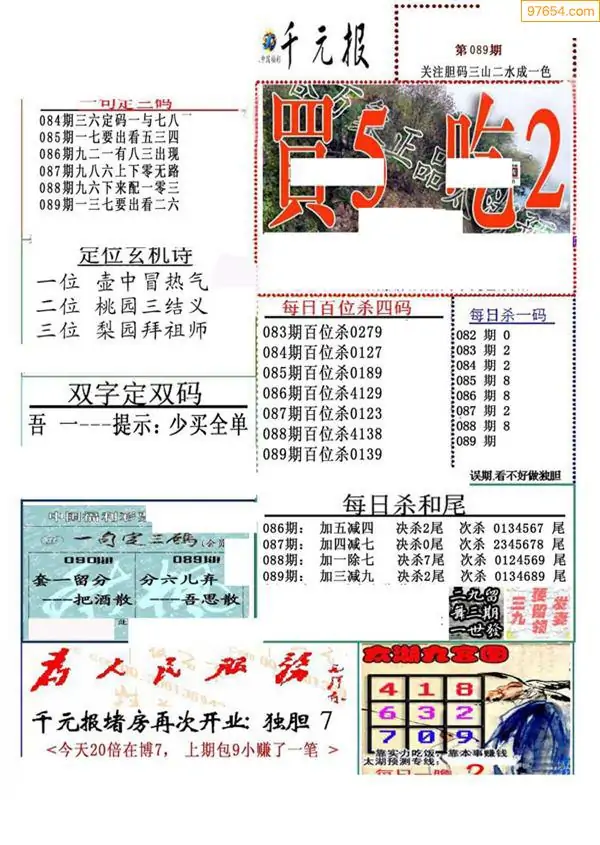 97654.com
千元报
第089期
关注胆码三山二水成一色
一句定三码
084期三六定码一与七八
085期一七要出看五三四
086期九二一有八三出现
087期九八六上下零无路
088期九六下来配一零三
089期一三七要出看二六
買5 吃2
定位玄机诗
一位 壶中冒热气
二位 桃园三结义
三位 梨园拜祖师
每日百位杀四码
083期百位杀0279
084期百位杀0127
085期百位杀0189
086期百位杀4129
087期百位杀0123
088期百位杀4138
089期百位杀0139
每日杀一码
082 期 0
083 期 2
084 期 2
085 期 8
086 期 8
087 期 2
088 期 8
089 期
误期,看不好做独胆
双字定双码
吾 一---提示:少买全单
每日杀和尾
086期: 加五减四 决杀2尾 次杀 0134567 尾
087期: 加四减七 决杀0尾 次杀 2345678 尾
088期: 加一除七 决杀7尾 次杀 0124569 尾
089期: 加三减九 决杀2尾 次杀 0134689 尾
一句定三码
090期 089期
套—留分 分六儿弃
——把酒散 ——吾思散
为人民服务
千元报堵房再次开业: 独胆 7
<今天20倍在博7, 上期包9小赚了一笔 >
太湖九宫图
4 1 8
6 3 2
7 0 9
靠实力吃饭,靠本事赚钱
太湖预测专线: